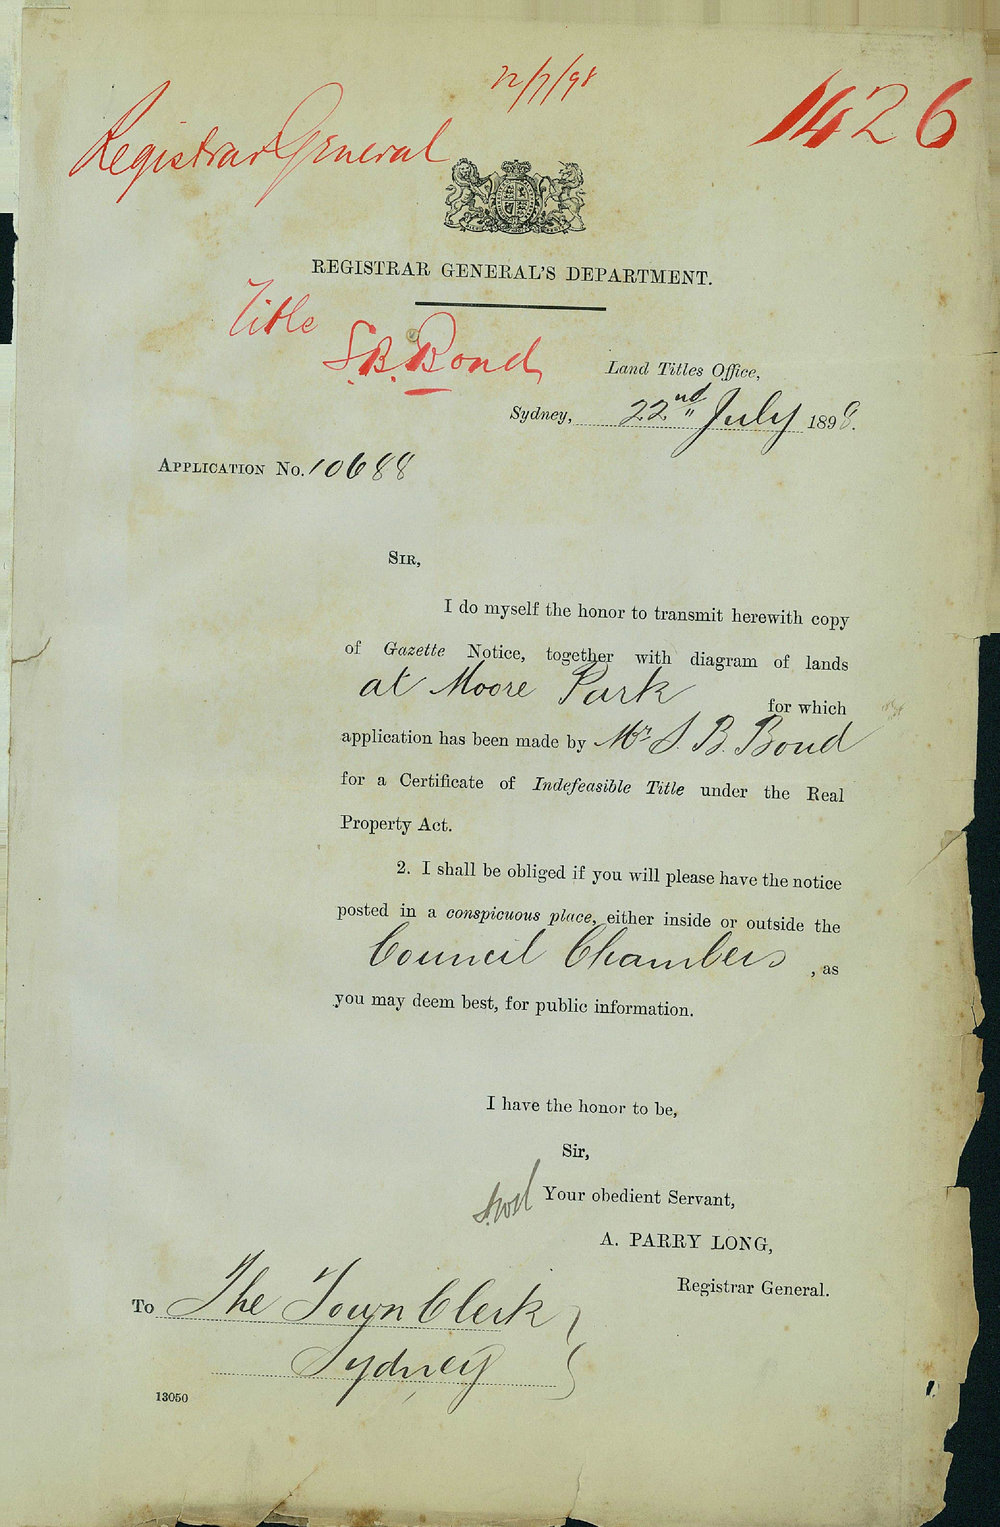 22/7/98
1426
Registrar General
REGISTRAR GENERAL'S DEPARTMENT.
Title
S. B. Bond
Land Titles Office,
Sydney, 22nd July 1898.
APPLICATION No. 10688
SIR,
I do myself the honor to transmit herewith copy
of Gazette Notice, together with diagram of lands
at Moore Park for which
application has been made by Mr. S. B. Bond
for a Certificate of Indefeasible Title under the Real
Property Act.
2. I shall be obliged if you will please have the notice
posted in a conspicuous place, either inside or outside the
Council Chambers, as
you may deem best, for public information.
I have the honor to be,
Sir,
Your obedient Servant,
A. PARRY LONG,
Registrar General.
To The Town Clerk
Sydney
13050